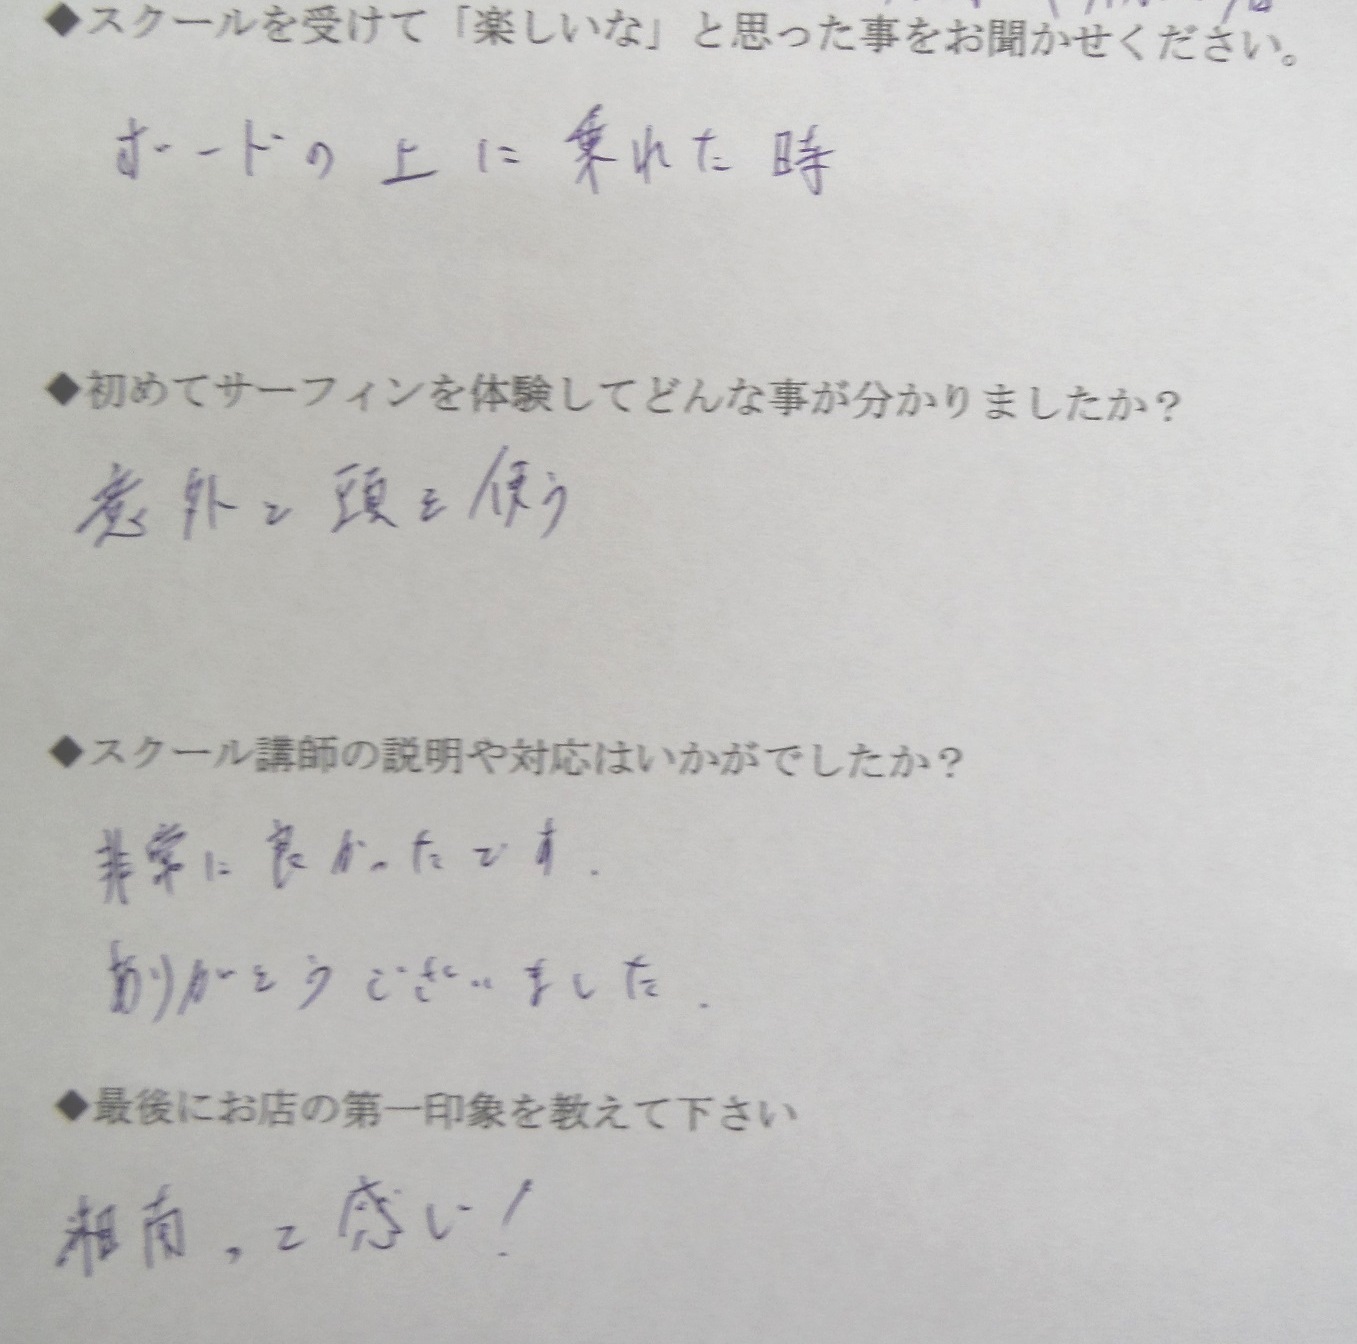 ◆スクールを受けて「楽しいな」と思った事をお聞かせください。
ボードの上に乗れた時
◆初めてサーフィンを体験してどんな事が分かりましたか？
意外と頭を使う
◆スクール講師の説明や対応はいかがでしたか？
非常に良かったです.
ありがとうございました.
◆最後にお店の第一印象を教えて下さい
湘南って感じ!